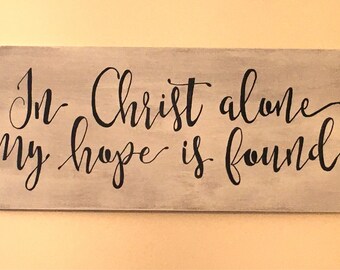 In Christ alone
my hope is found